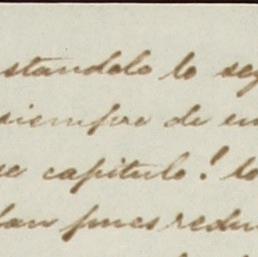 standolo lo seg
siempre de en
se capitulo! lo
lan pues redu